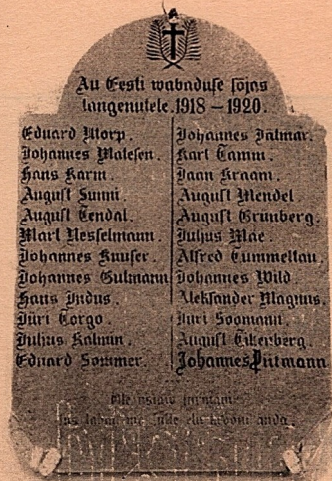 Au Eesti wabaduse sõjas
langenutele 1918 – 1920.
Eduard Morp.
Johannes Malesen.
Hans Karm.
August Sunni.
August Tendal.
Mart Nesselmann.
Johannes Knuser.
Johannes Gutmann
Hans Indus.
Jüri Torgo.
Julius Kalmin.
Eduard Sommer.
Johannes Jalmar.
Karl Tamm.
Jaan Kraam.
August Mendel.
August Grünberg.
Julius Mäe.
Alfred Tummeltau.
Johannes Wild
Aleksander Magnus.
Juri Soomann.
August Tikerberg.
Johannes Pütmann